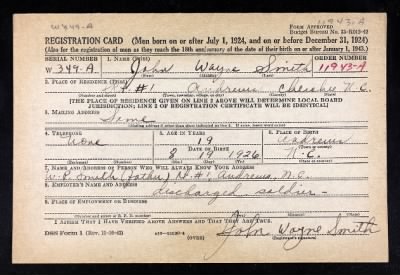 W349-A
11943-A
FORM APPROVED
REGISTRATION CARD (Men born on or after July 1, 1924, and on or before December 31, 1924)
(Also for the registration of men as they reach the 18th anniversary of the date of their birth on or after January 1, 1943.)
SERIAL NUMBER 1. NAME (Print) ORDER NUMBER
W 349-A John Wayne Smith 11943-A
2. PLACE OF RESIDENCE (Print)
#1 Andrews Cherokee N.C.
[THE PLACE OF RESIDENCE GIVEN ON LINE 2 ABOVE WILL DETERMINE LOCAL BOARD
JURISDICTION; LINE 2 OF REGISTRATION CERTIFICATE WILL BE IDENTICAL]
3. MAILING ADDRESS
Same
[Mailing address if other than place indicated on line 2. If same, insert word same]
4. TELEPHONE 5. AGE IN YEARS 6. PLACE OF BIRTH
None 19 Andrews
DATE OF BIRTH
8 19 1926 N.C.
7. NAME AND ADDRESS OF PERSON WHO WILL ALWAYS KNOW YOUR ADDRESS
Smith (father) #1, Andrews, N.C.
8. EMPLOYER'S NAME AND ADDRESS
discharged soldier-
9. PLACE OF EMPLOYMENT OR BUSINESS
I AFFIRM THAT I HAVE VERIFIED ABOVE ANSWERS AND THAT THEY ARE TRUE.
DSS Form 1 (OVER)
John Wayne Smith